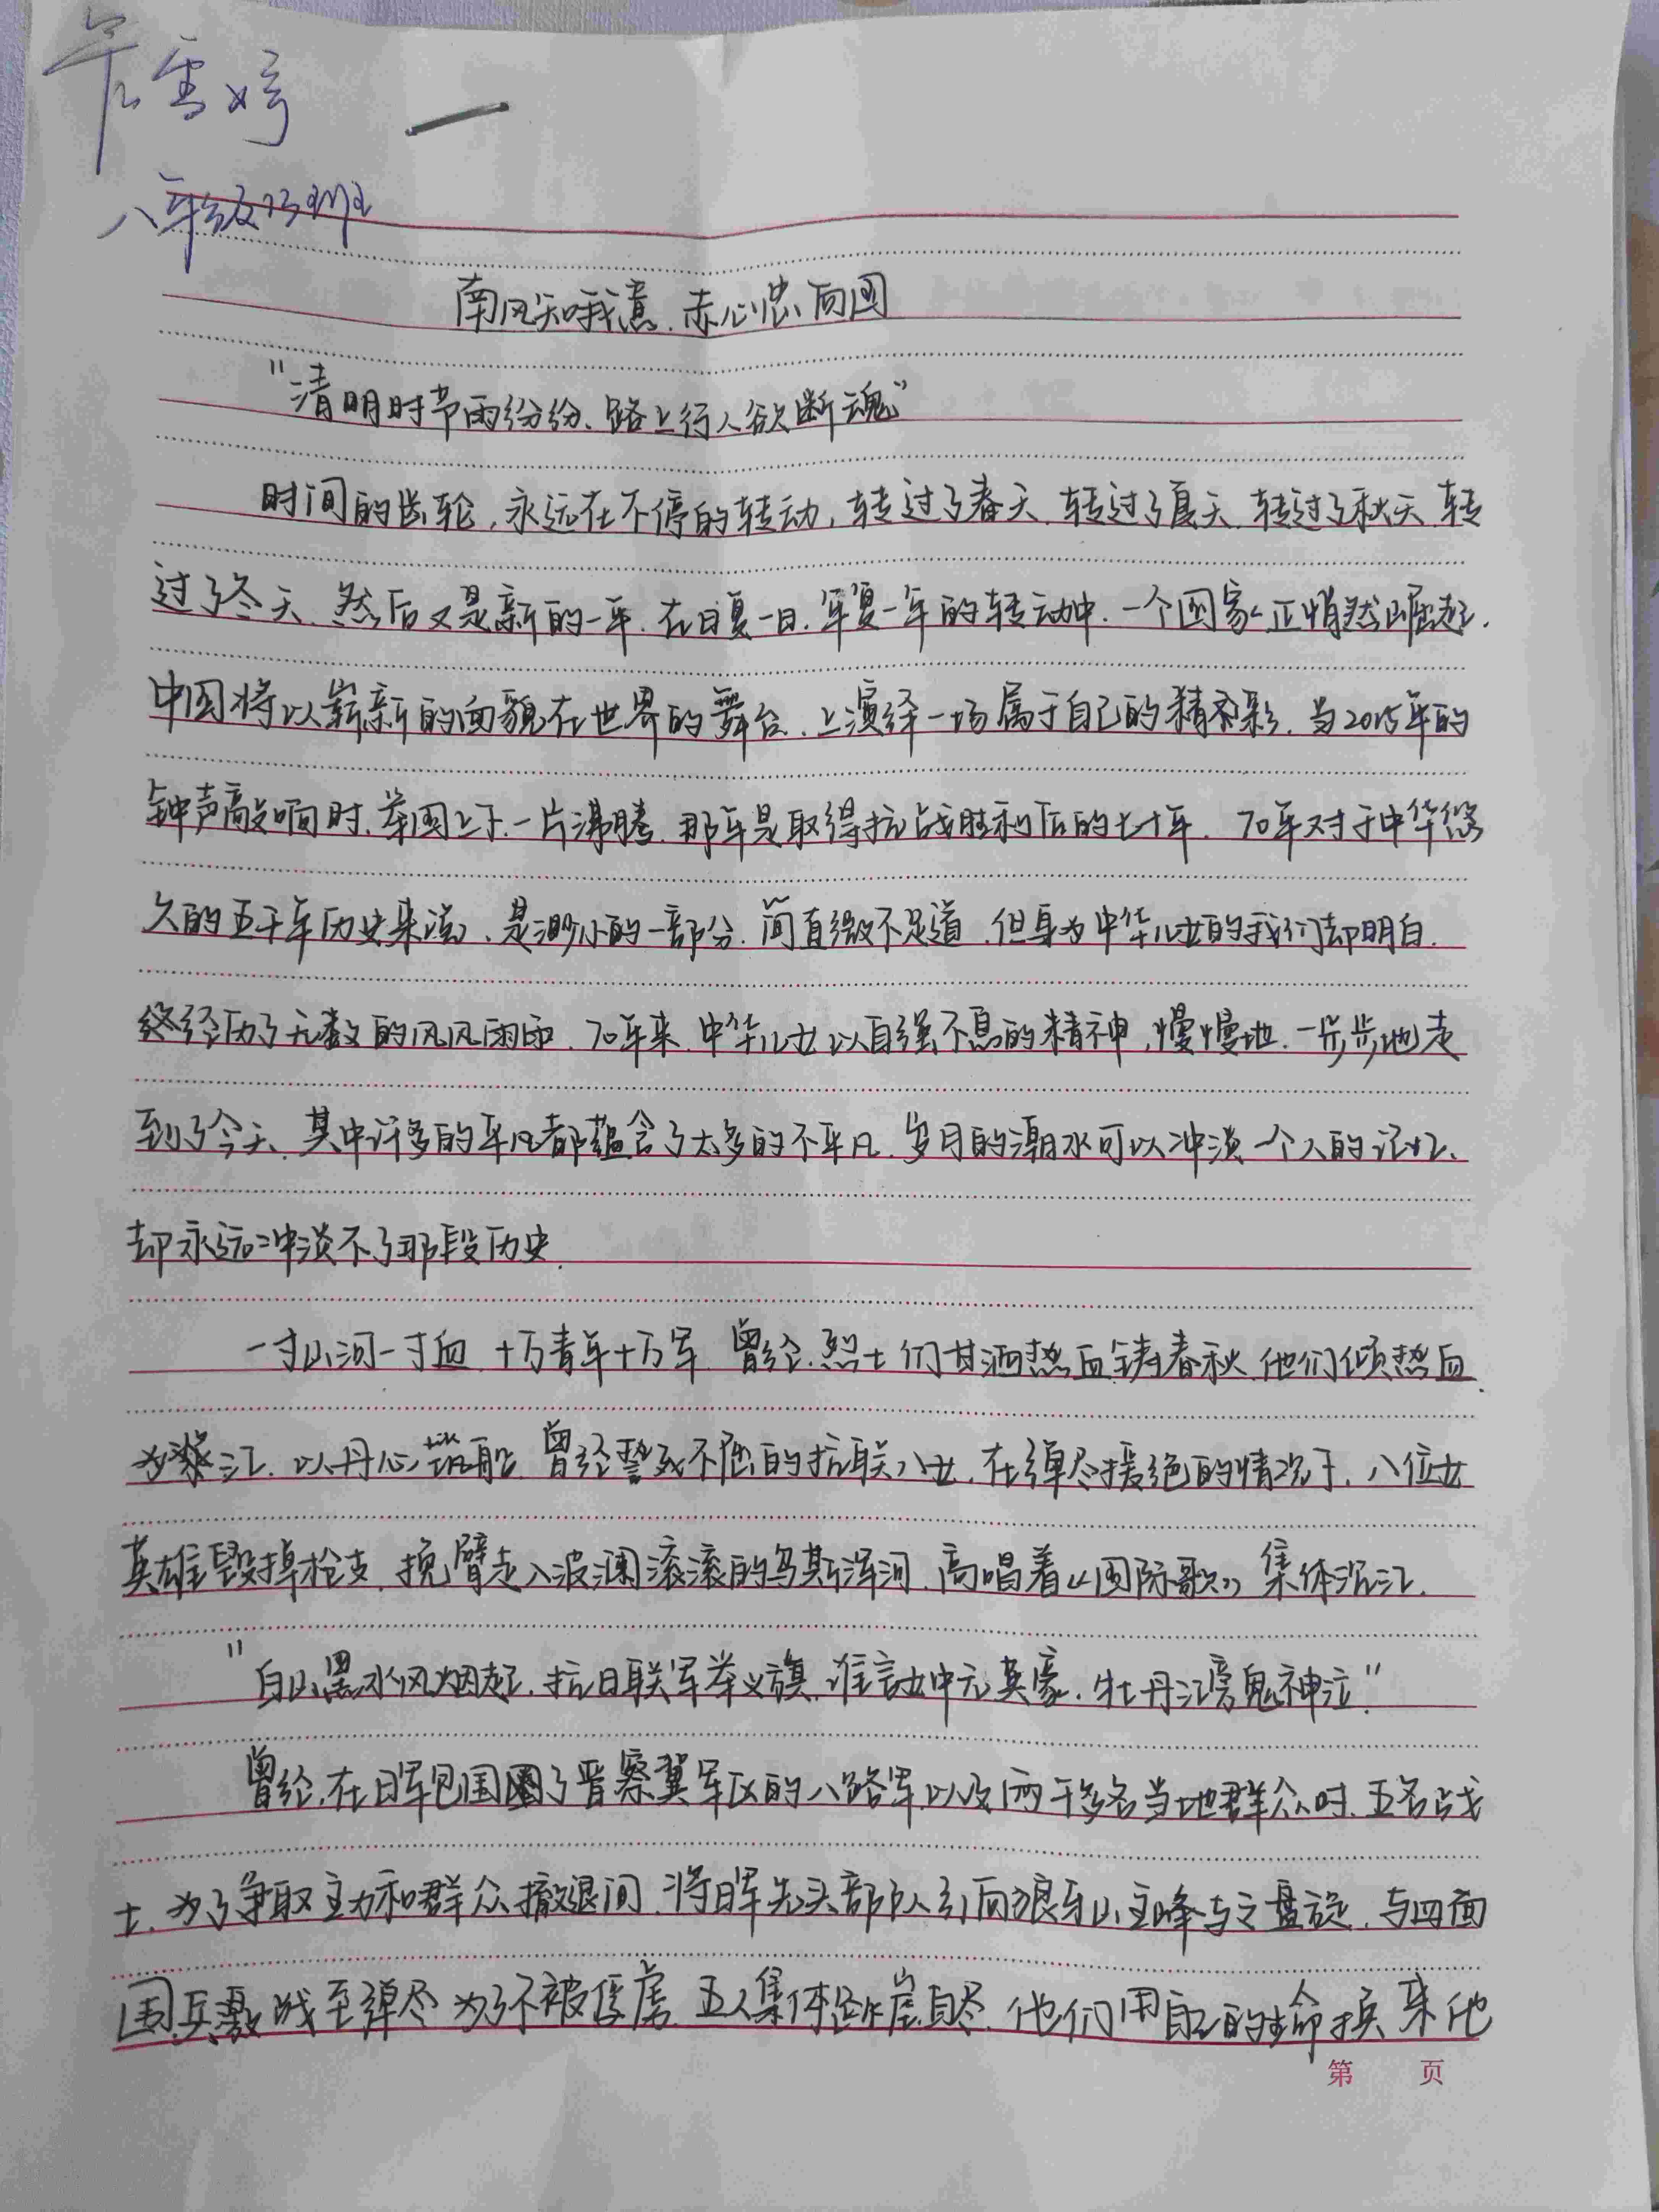 雪婷
八年级13班
南风知我意.赤心忠向国
"清明时节雨纷纷、路上行人欲断魂"
时间的齿轮,永远在不停的转动,转过了春天.转过了夏天.转过了秋天.转
过了冬天.然后又是新的一年.在日复一日.年复一年的转动中.一个国家正悄然崛起.
中国将以崭新的面貌在世界的舞台.上演绎一场属于自己的精彩.当2015年的
钟声敲响时.举国上下.一片沸腾.那年是取得抗战胜利后的七十年.70年对于中华悠
久的五千年历史来说、是渺小的一部分.简直微不足道.但身为中华儿女的我们却明白.
终经历了无数的风风雨雨.70年来.中华儿女以自强不息的精神,慢慢地.一步步地走
到了今天.其中许多的平凡都蕴含了太多的不平凡.岁月的潮水可以冲淡一个人的记忆、
却永远冲淡不了那段历史.
一寸山河一寸血 十万青年十万军.曾经.烈士们甘洒热血铸春秋.他们倾热血
为江.以丹心筑船.曾经誓死不屈的抗联八女.在弹尽援绝的情况下.八位女
英雄毁掉枪支.挽臂走入波澜滚滚的乌斯浑河.高唱着《国际歌》集体沉江.
"白山黑水风烟起.抗日联军举义旗.谁言女中无英豪.牡丹江旁鬼神泣."
曾经.在日军包围了晋察冀军区的八路军以及两千多名当地群众时.五名战
士.为了争取主力和群众撤退间.将日军先头部队引向狼牙山主峰与之盘旋.与四面
围兵激战至弹尽.为了不被俘虏.五人集体跳崖自尽.他们用自己的生命换来他
第 页